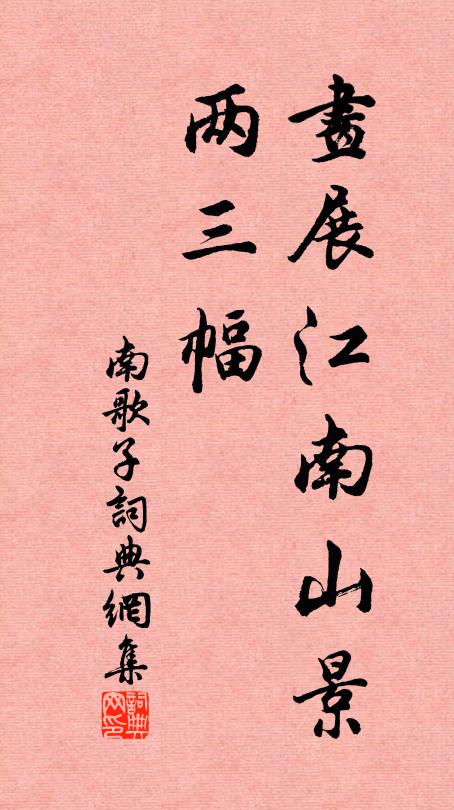 畫展江南山景
两三幅
南歌子詞典網集
詞典
网印